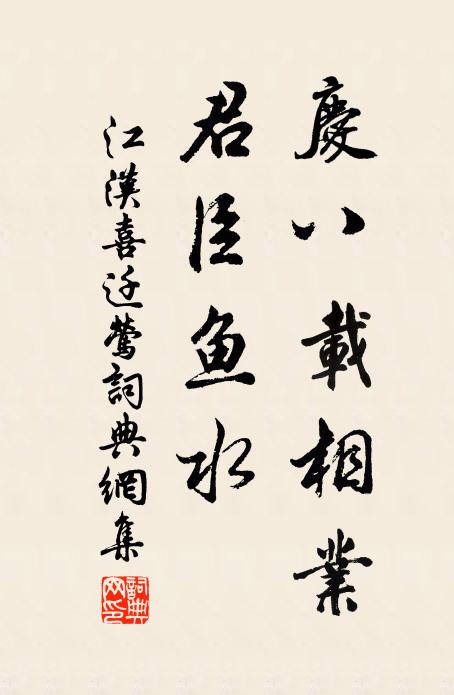 慶八載相業
君臣魚水
江漢喜迁鶯詞典網集
詞典網印